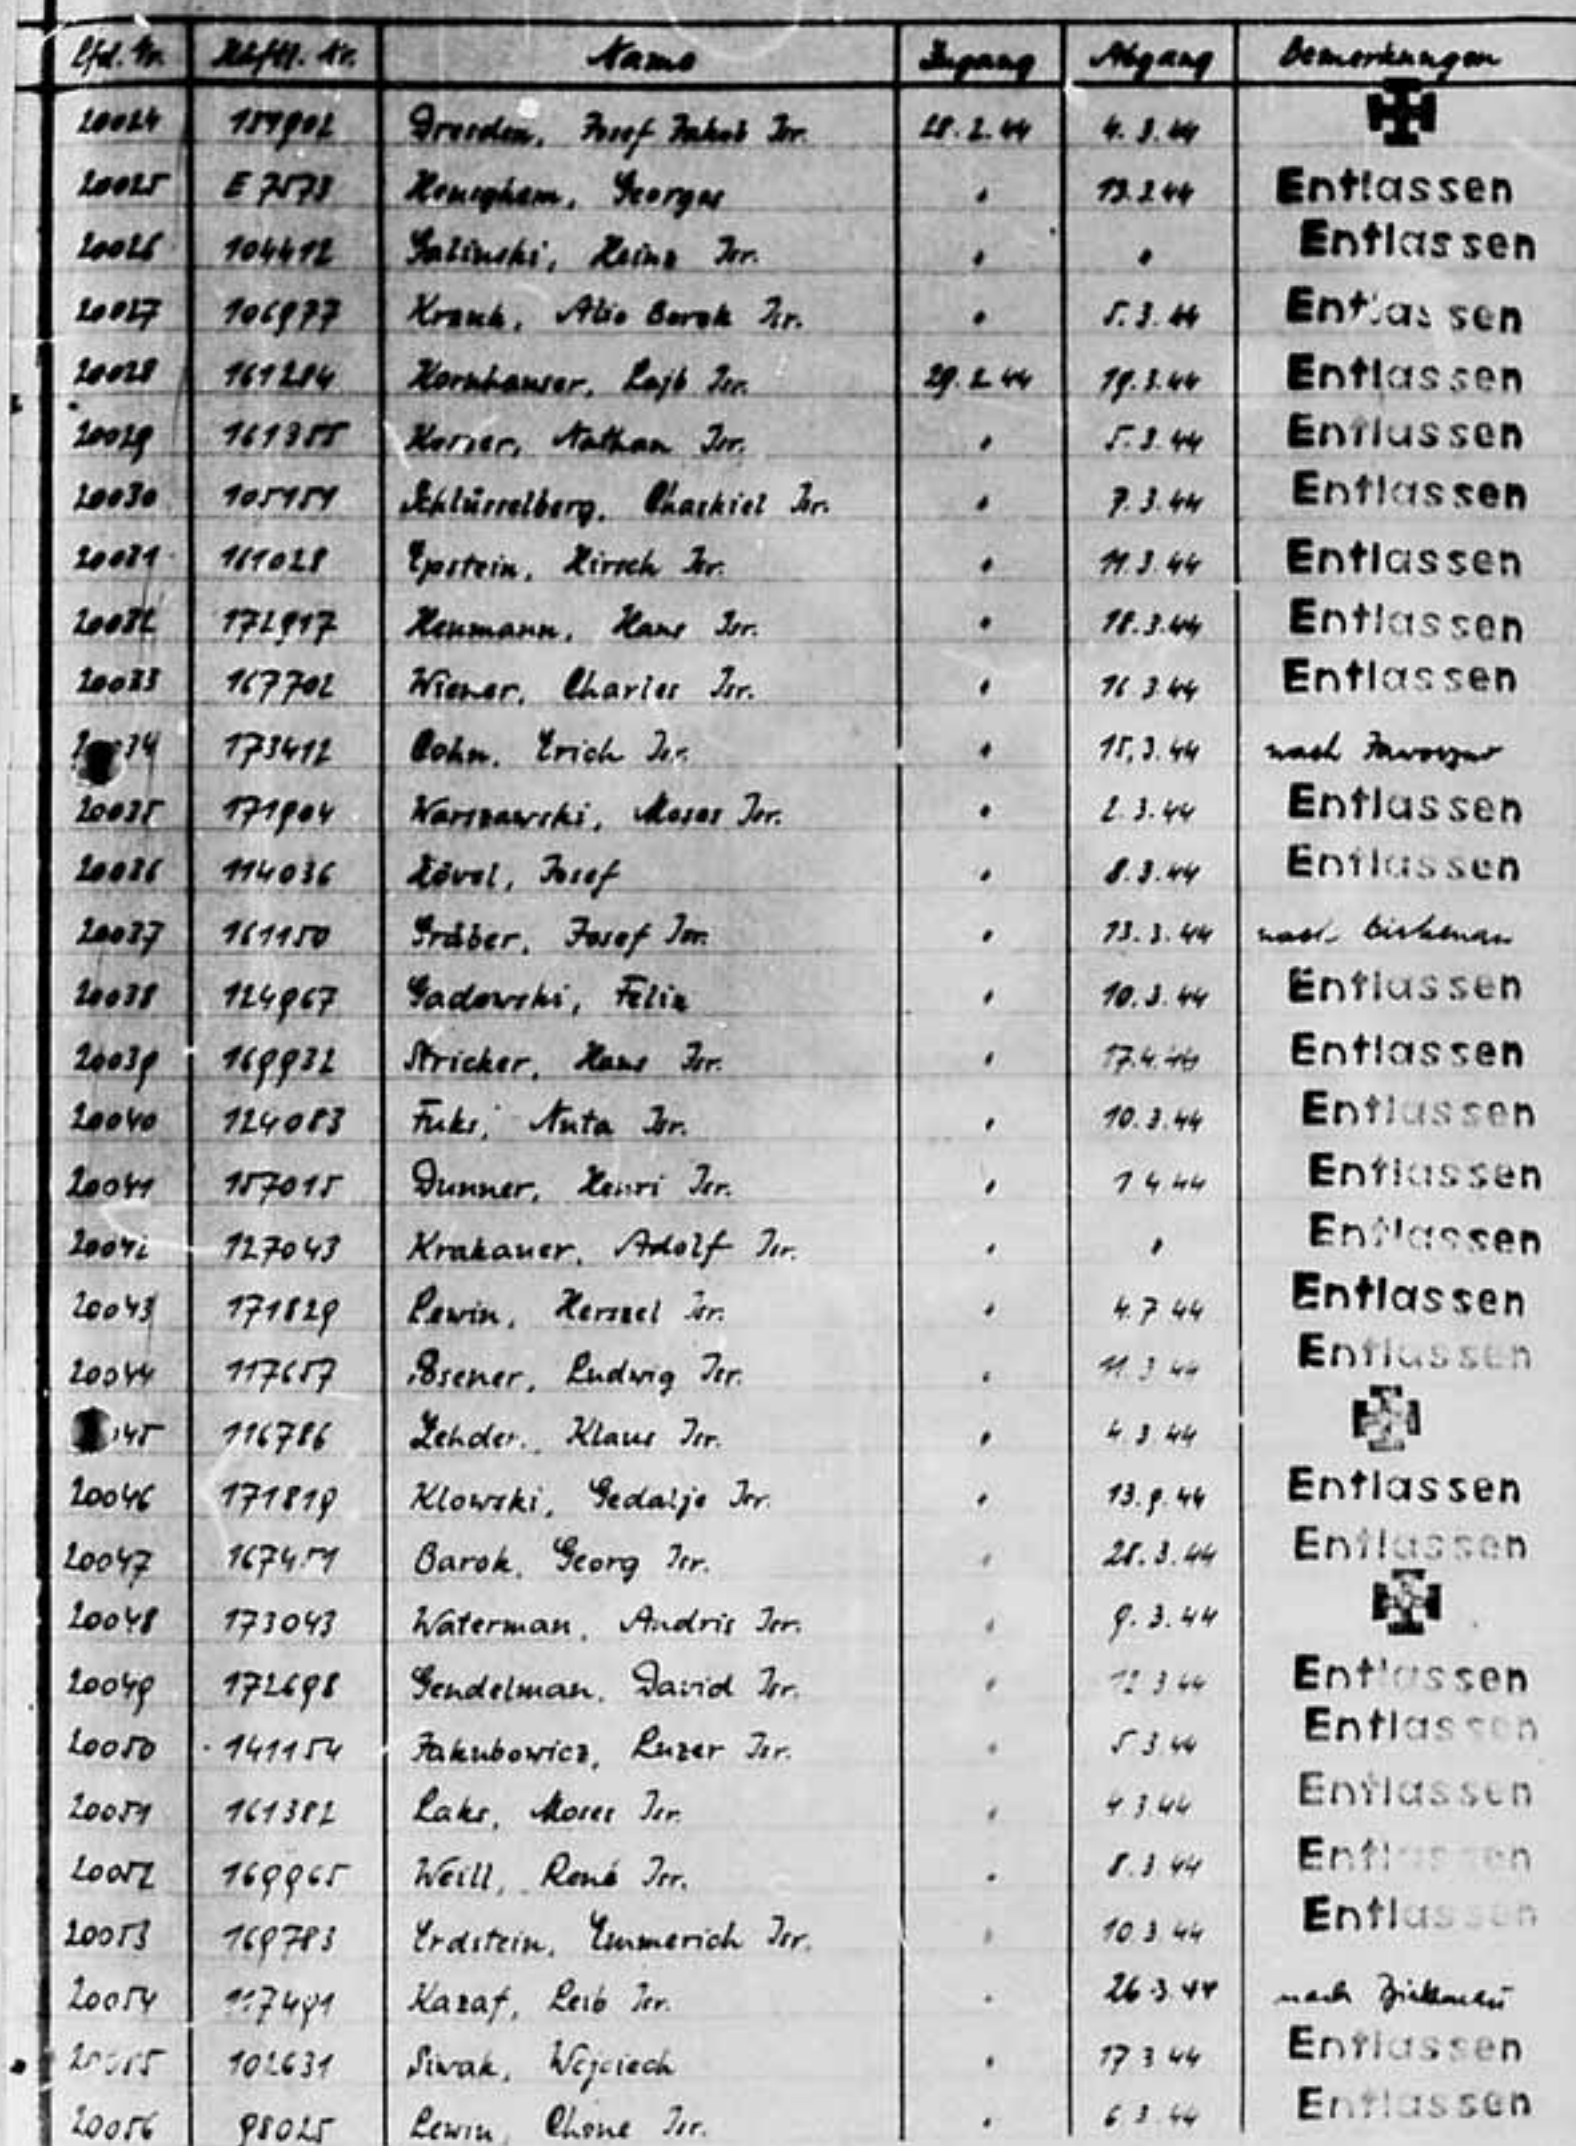 Lfd. Nr. Häftl. Nr. Name Zugang Abgang Bemerkungen
20024 157902 Dresden, Josef Jakob Isr. 28.2.44 4.3.44
20025 E 7573 Georges 13.2.44 Entlassen
20026 104412 Galinski, Heinz Isr. Entlassen
20027 106977 Isr. 5.3.44 Entlassen
20028 161284 Kornhauser, Lajb Isr. 29.2.44 19.3.44 Entlassen
20029 161355 Nathan Isr. 5.3.44 Entlassen
20030 105151 Schlüsselberg, Chaskiel Isr. 7.3.44 Entlassen
20031 161028 Epstein, Hirsch Isr. 11.3.44 Entlassen
20032 172917 Heumann, Hans Isr. 18.3.44 Entlassen
20033 167702 Wiener, Charles Isr. 16.3.44 Entlassen
173412 Cohn, Erich Isr. 15.3.44 nach
20035 171904 Warszawski, Moses Isr. 2.3.44 Entlassen
20036 114036 Hövel, Josef 8.3.44 Entlassen
20037 161150 Gräber, Josef Isr. 13.3.44 nach Birkenau
20038 124967 Gadowski, Felix 10.3.44 Entlassen
20039 169932 Stricker, Hans Isr. 17.4.44 Entlassen
20040 124083 Fuks, Nuta Isr. 10.3.44 Entlassen
20041 157015 Dunner, Henri Isr. 1 4 44 Entlassen
20042 127043 Krakauer, Adolf Isr. Entlassen
20043 171829 Lewin, Herszel Isr. 4.7 44 Entlassen
20044 117657 Posener, Ludwig Isr. 11 3 44 Entlassen
116786 Zehder, Klaus Isr. 4 3 44
20046 171819 Klowski, Gedalje Isr. 13.9.44 Entlassen
20047 167451 Barok, Georg Isr. 28.3.44 Entlassen
20048 173043 Waterman, Andris Isr. 9.3.44
20049 172698 Gendelman, David Isr. 12 3 44 Entlassen
20050 141154 Jakubowicz, Luzer Isr. 5 3 44 Entlassen
20051 161382 Laks, Moses Isr. 4 3.44 Entlassen
20052 169965 Weill, René Isr. 8.3 44 Entlassen
20053 169783 Erdstein, Emmerich Isr. 10 3 44 Entlassen
20054 117491 Kazaf, Leib Isr. 26 3 44 nach Birkenau
20055 102631 Siwak, Wojciech 17 3 44 Entlassen
20056 98025 Lewin, Chone Isr. 6 3 44 Entlassen